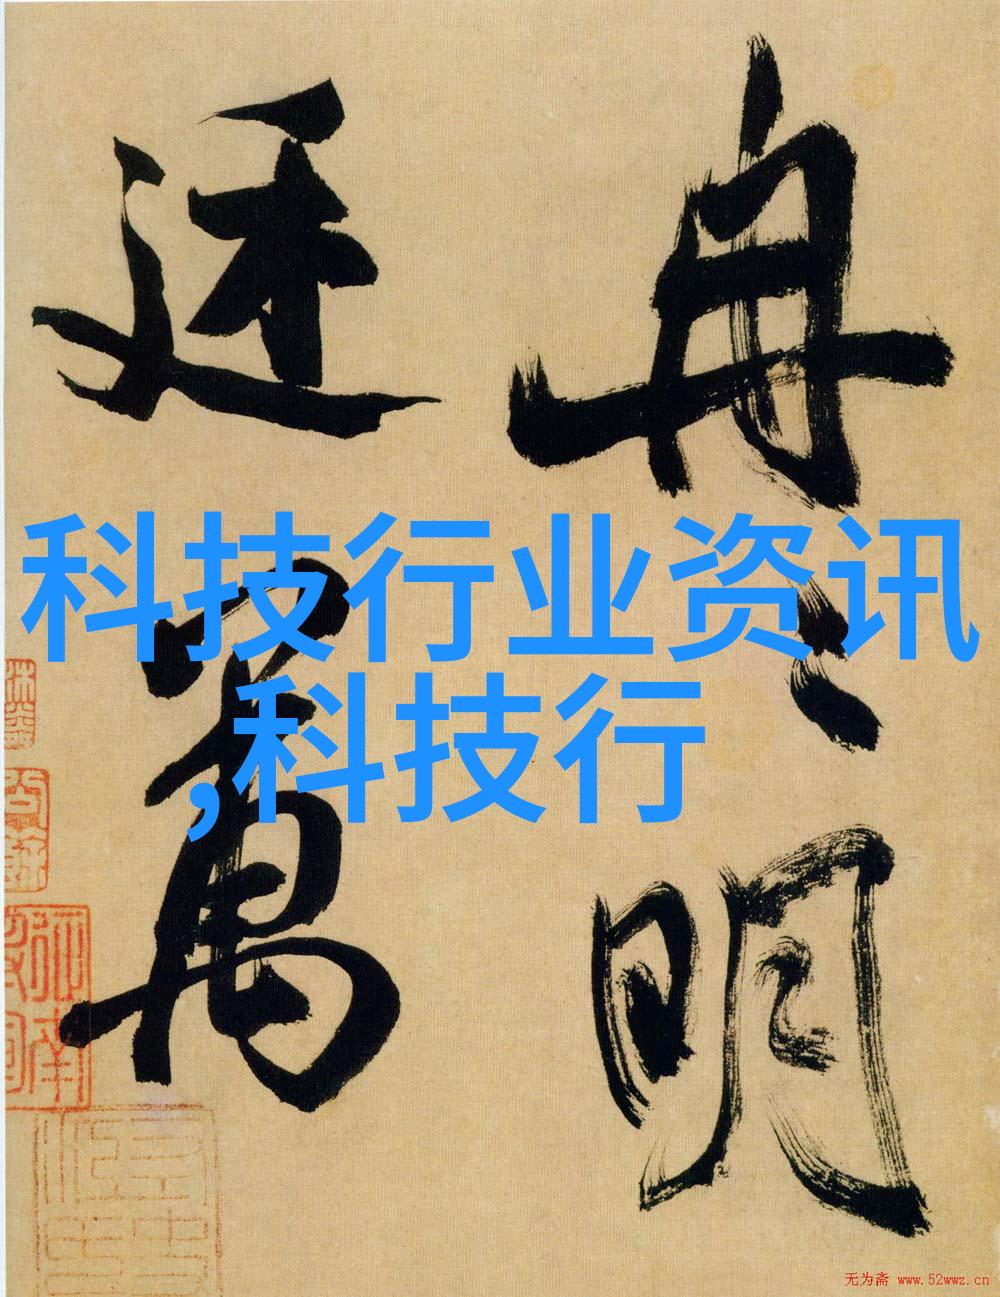 冉〻明
廷萬
科技行业资讯
,科技行
无为斋 www.52wwz.cn